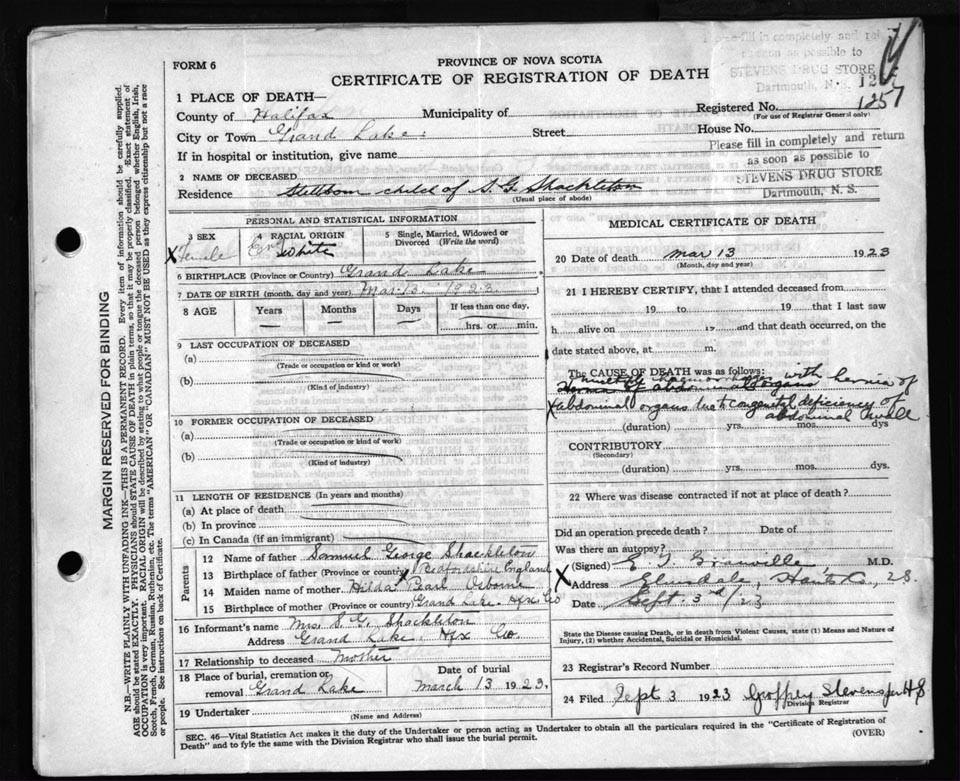 FORM 6
PROVINCE OF NOVA SCOTIA
CERTIFICATE OF REGISTRATION OF DEATH
fill in completely and
as possible to
STEVENS DRUG STORE
Dartmouth, N. S.
1257
1 PLACE OF DEATH—
County of Halifax
Municipality of
Registered No.
(For use of Registrar General only)
City or Town Grand Lake
Street
House No.
Please fill in completely and return
as soon as possible to
STEVENS DRUG STORE
Dartmouth, N. S.
If in hospital or institution, give name
2 NAME OF DECEASED Stillborn child of S. G. Shackleton
Residence
(Usual place of abode)
PERSONAL AND STATISTICAL INFORMATION
3 SEX
X Female
4 RACIAL ORIGIN
Eng White
5 Single, Married, Widowed or Divorced (Write the word)
6 BIRTHPLACE (Province or Country) Grand Lake
7 DATE OF BIRTH (month, day and year) Mar. 13. 1923.
8 AGE
Years
Months
Days
If less than one day,
hrs. or min.
9 LAST OCCUPATION OF DECEASED
(a)
(Trade or occupation or kind or work)
(b)
(Kind of industry)
10 FORMER OCCUPATION OF DECEASED
(a)
(Trade or occupation or kind or work)
(b)
(Kind of industry)
11 LENGTH OF RESIDENCE (In years and months)
(a) At place of death
(b) In province
(c) In Canada (if an immigrant)
Parents
12 Name of father Samuel George Shackleton
13 Birthplace of father (Province or country) X Bedfordshire England
14 Maiden name of mother Hilda Pearl Osborne
15 Birthplace of mother (Province or country) Grand Lake. Hfx. Co
16 Informant's name Mrs. S. G. Shackleton
Address Grand Lake Hfx Co.
17 Relationship to deceased Mother
18 Place of burial, cremation or removal Grand Lake
Date of burial
March 13 1923.
19 Undertaker
(Name and Address)
MEDICAL CERTIFICATE OF DEATH
20 Date of death Mar 13 1923
(Month, day and year)
21 I HEREBY CERTIFY, that I attended deceased from
19 to 19 that I last saw
h alive on 19 and that death occurred, on the
date stated above, at m.
The CAUSE OF DEATH was as follows:
with hernia of
X abdominal organs thro congenital deficiency of
abdominal wall
(duration) yrs. mos. dys
CONTRIBUTORY
(Secondary)
(duration) yrs. mos. dys.
22 Where was disease contracted if not at place of death?
Did an operation precede death? Date of
Was there an autopsy?
(Signed) E. Granville M.D.
X Address Elmsdale, Hants Co, 28
Date Sept 3rd/23
State the Disease causing Death, or in death from Violent Causes, state (1) Means and Nature of Injury, (2) whether Accidental, Suicidal or Homicidal.
23 Registrar's Record Number
24 Filed Sept 3 1923 Geoffrey Stevens
Division Registrar
SEC. 46—Vital Statistics Act makes it the duty of the Undertaker or person acting as Undertaker to obtain all the particulars required in the "Certificate of Registration of
Death" and to fyle the same with the Division Registrar who shall issue the burial permit.
(OVER)
MARGIN RESERVED FOR BINDING
N.B.—WRITE PLAINLY WITH UNFADING INK—THIS IS A PERMANENT RECORD. Every item of information should be carefully supplied.
AGE should be stated EXACTLY. PHYSICIANS should STATE CAUSE OF DEATH in plain terms, so that it may be properly classified. Exact statement of
OCCUPATION is very important. RACIAL ORIGIN will be described by stating to what people or tongue the deceased person belonged whether English, Irish,
Scotch, French, German, Russian, Ruthenian, etc. The terms "AMERICAN" OR "CANADIAN" MUST NOT BE USED as they express citizenship but not a race
or people. See instructions on back of Certificate.